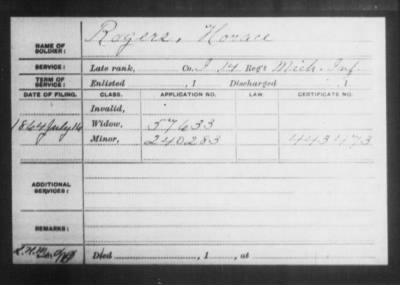 NAME OF SOLDIER: Rogers, Horace
SERVICE: Late rank, Co. I 14 Reg't Mich. Inf.
TERM OF SERVICE: Enlisted , 1 Discharged , 1
DATE OF FILING. CLASS. APPLICATION NO. LAW. CERTIFICATE NO.
Invalid,
1864 July 16 Widow, 57633
Minor, 240283 443473
ADDITIONAL SERVICES:
REMARKS:
Died , 1 , at